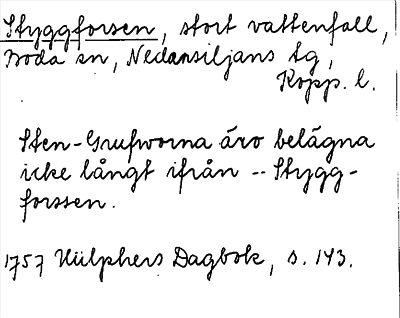 Styggforsen, stort vattenfall,
Boda sn, Nedansiljans tg,
Kopp. l.
Sten-Grufworna äro belägna
icke långt ifrån -- Stygg-
forssen.
1757 Hülphers Dagbok, s. 143.